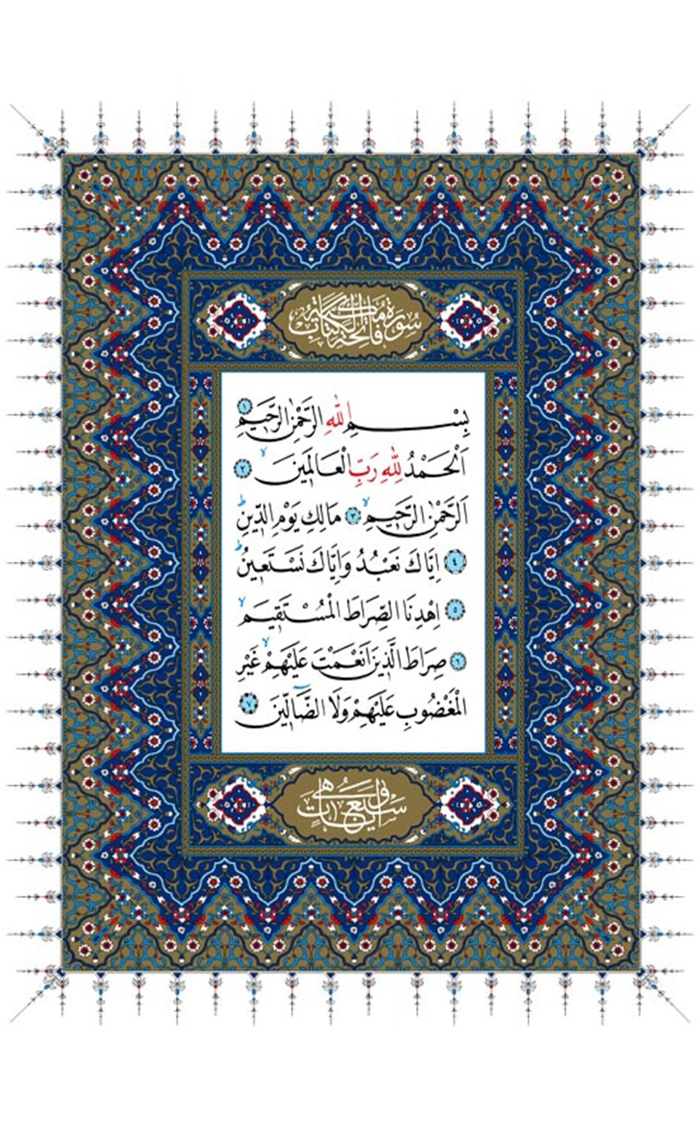 سُورَةُ فَاتِحَةِ الْكِتَابِ مَكِّيَّةٌ
بِسْمِ اللهِ الرَّحْمٰنِ الرَّحٖيمِ ١
اَلْحَمْدُ لِلهِ رَبِّ الْعَالَمٖينَ ٢
اَلرَّحْمٰنِ الرَّحٖيمِ ٣ مَالِكِ يَوْمِ الدّٖينِ
٤ اِيَّاكَ نَعْبُدُ وَاِيَّاكَ نَسْتَعٖينُ
٥ اِهْدِنَا الصِّرَاطَ الْمُسْتَقٖيمَ
٦ صِرَاطَ الَّذٖينَ اَنْعَمْتَ عَلَيْهِمْ غَيْرِ
الْمَغْضُوبِ عَلَيْهِمْ وَلَا الضَّالّٖينَ ٧